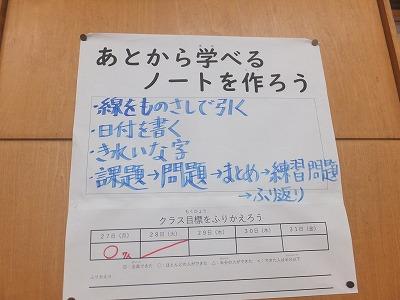 あとから学べる
ノートを作ろう
・線をものさしで引く
・日付を書く
・きれいな字
・課題→問題→まとめ→練習問題
→ふり返り
クラス目標をふりかえろう
27日(月) 28日(火) 29日(水) 30日(木) 31日(金)
ふりかえり